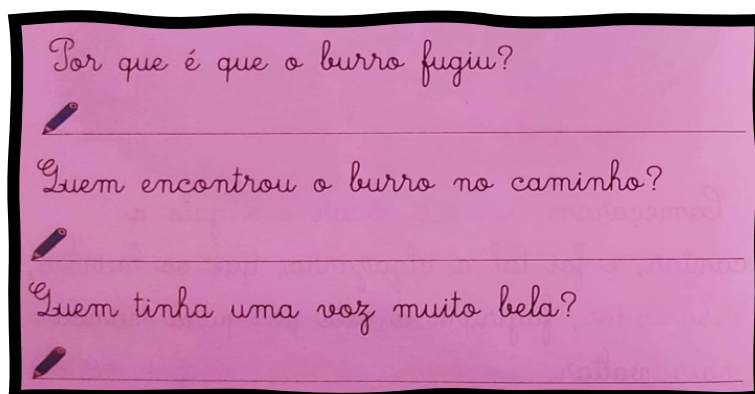 Por que é que o burro fugiu?
Quem encontrou o burro no caminho?
Quem tinha uma voz muito bela?